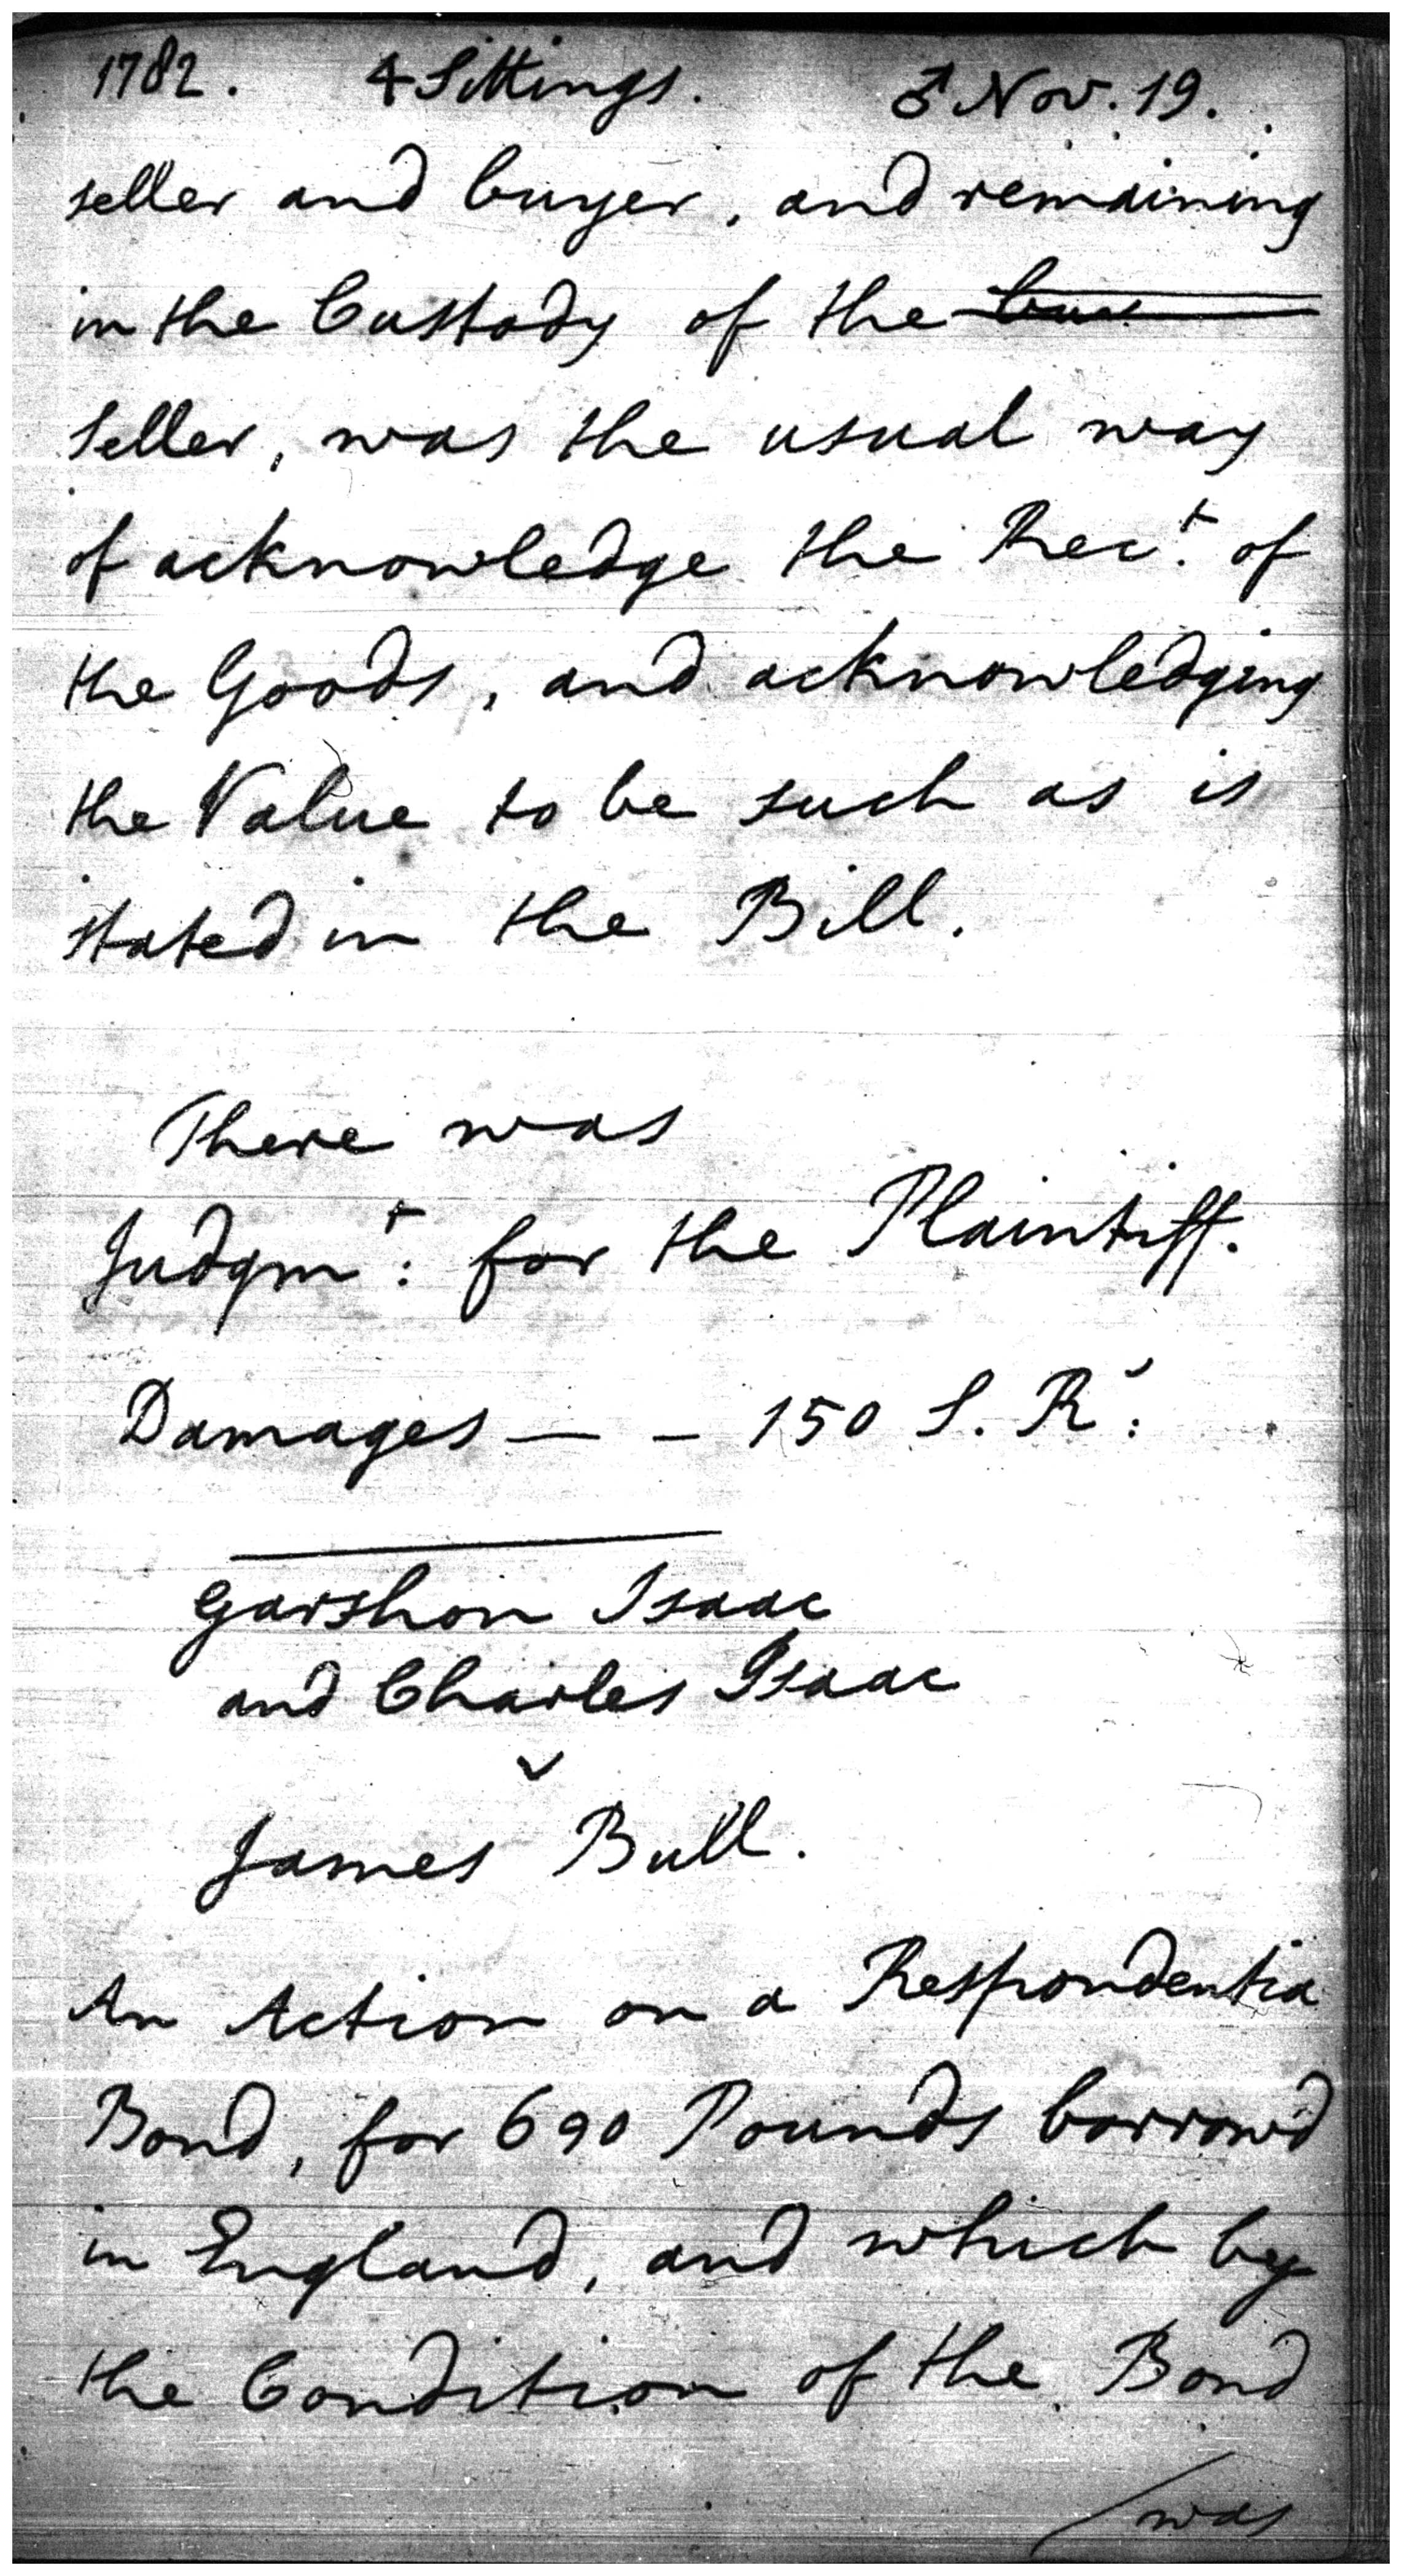 1782. 4 Sittings. ♂ Nov. 19.
seller and buyer, and remaining
in the Custody of the
seller, was the usual way
of acknowledge the Rect. of
the Goods, and acknowledging
the Value to be such as is
stated in the Bill.
There was
Judgmt: for the Plaintiff.
Damages — – 150 S. Rs:
Garshon Isaac
and Charles Isaac
v
James Bull.
An Action on a Respondentia
Bond, for 690 Pounds borrow'd
in England, and which by
the Condition of the Bond
was